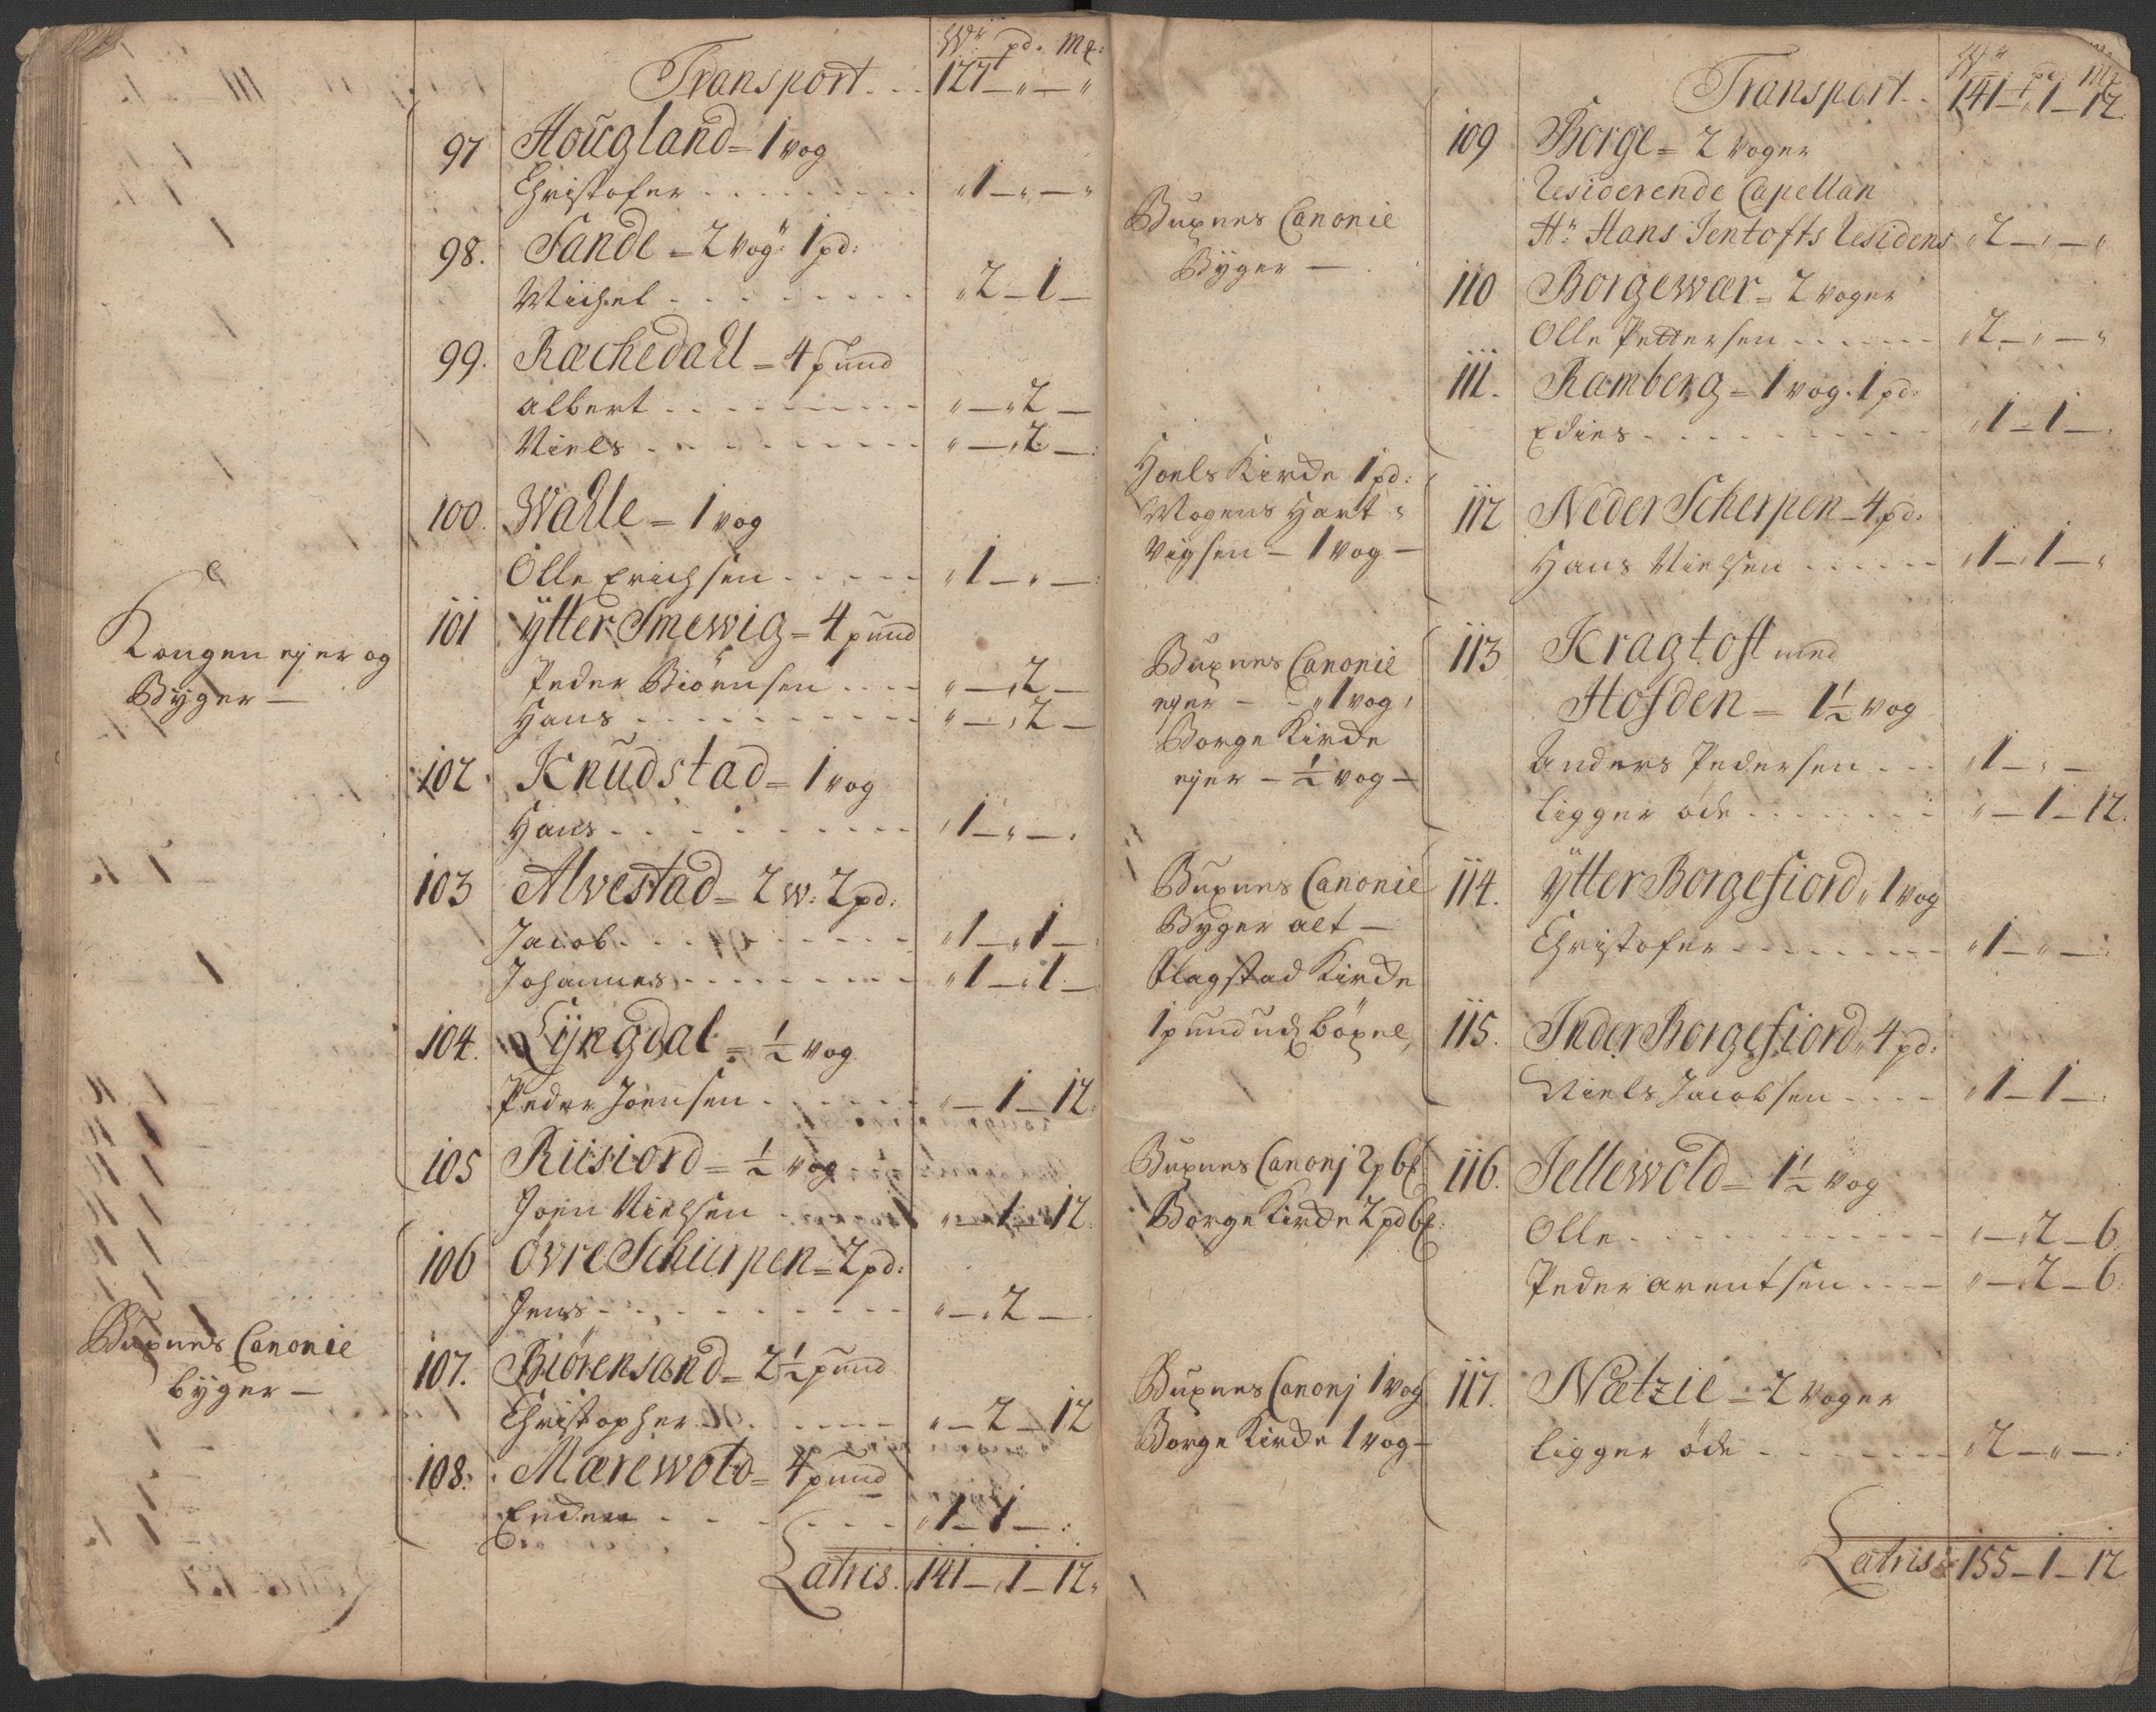 W: pd. Mk:
Transport. . . 127 — " — "
97 Hougland = 1 vog
Christofer . . . . . . . . . " 1 — " — "
98. Sande = 2 vog: 1 pd:
Michel . . . . . . . . . " 2 — 1 —
99. Rachedall = 4 pund
Albert . . . . . . . . . " — " 2 —
Niels . . . . . . . . . " — " 2 — :
100. Walle = 1 vog
Olle Erichsen . . . . . " 1 — " — :
Kongen ejer og
Byger —
101 ÿtter Smewig = 4 pund
Peder Biörnsen . . . . " — " 2 —
Hans . . . . . . . . . " — " 2 —
102. Knudstad = 1 vog
Hans . . . . . . . . . " 1 — " — .
103 Alvestad = 2 w: 2 pd:
Jacob . . . . . . . . . " 1 — " 1 —
Johannes . . . . . . . . " 1 — " 1 —
104. Lyngdal = ½ vog
Peder Joensen . . . . . . " — 1 — 12.
105 Riisiord = ½ vog
Joen Nielsen . . . . " — 1 — 12.
Buxnes Canonie
byger —
106 Ovre Schierpen = 2 pd:
Jens . . . . . . . . . " — " 2 — .
107. Biörensand = 2½ pund
Christopher . . . . . . . " — 2 — 12
108. Mærewold = 4 pund
Enden . . . . . . . " 1 — 1 — :
Latris. 141 — 1 — 12.
W: pd: Mk.
Transport. . 141 — 1 — 12.
Buxnes Canonie
Byger —
109 Borge = 2 voger
Residerende Capellan
Hr: Hans Jentofts Residens " 2 — " — "
110 Borgewær = 2 voger
Olle Pettersen . . . . . . " 2 — " — "
111. Ramberg = 1 vog. 1 pd.
Edies . . . . . . . . . " 1 — 1 — .
Hoels Kirche 1 pd:
Mogens Hart:
vigsen — 1 vog —
112 Neder Scherpen — 4 pd:
Hans Nielsen . . . . . . " 1 — 1 — "
Buxnes Canonie
ejer — " 1 vog,
Borge Kirche
ejer — ½ vog —
113 Kragtoft med
Hofden = 1½ vog
Anders Pedersen . . . " 1 — " —
ligger øde . . . . . . . . " — 1 — 12.
Buxnes Canonie
Byger alt —
Flagstad Kirche
1 pund udj böxel,
114. ÿtter Borgefiord, 1 vog
Christofer . . . . . . . . " 1 — " — :
115. Inder Borgefiord, 4 pd:
Niels Jacobsen . . . . " 1 — 1 — :
Buxnes Canonj 2 p 6 k
Borge Kirche 2 pd 6 k:
116. Jellewold = 1½ vog
Olle . . . . . . . . . . . " — " 2 — 6
Peder Arentsen . . . . " — " 2 — 6:
Buxnes Canonj 1 vog
Borge Kirche 1 vog —
117. Nætzie = 2 voger
ligger öde . . . . . . . . " 2 — " — :
Latris 155 — 1 — 12